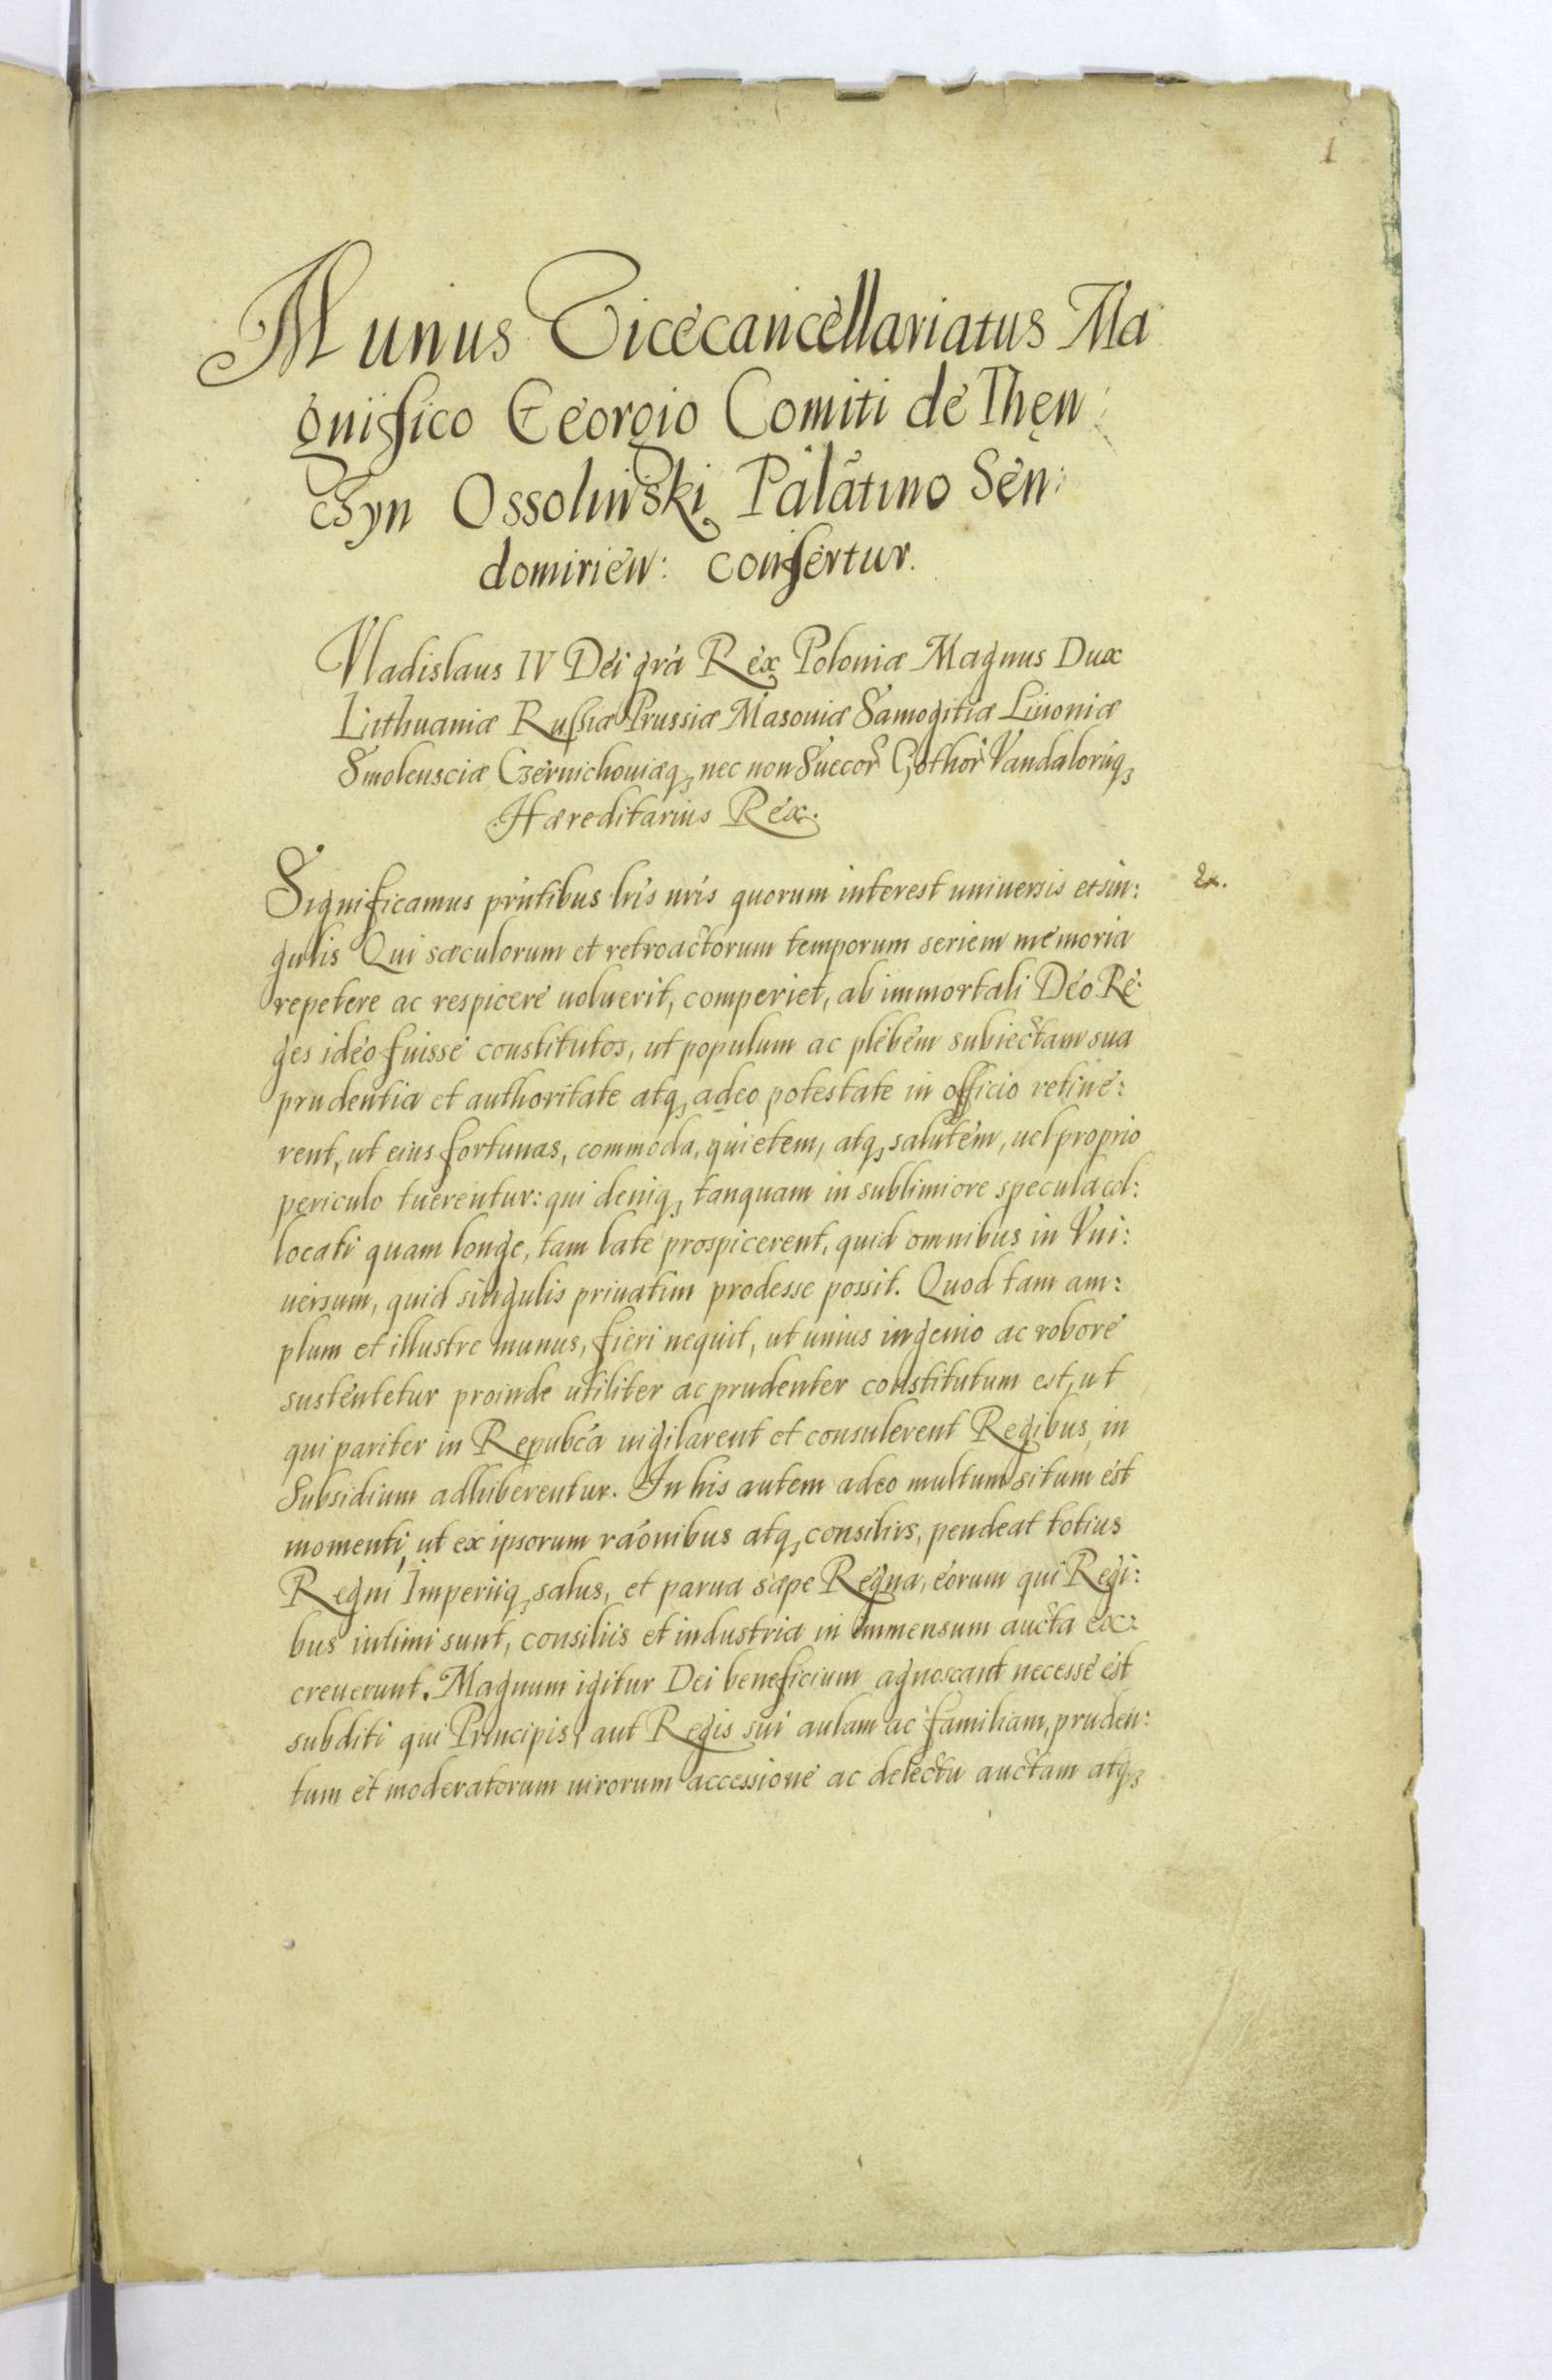 1
Munus Vicecancellariatus Ma
gnifico Georgio Comiti de Thęn:
czyn Ossolinski Palatino Sen:
domirien: confertur.
Vladislaus IV Dei grã Rex Poloniæ Magnus Dux
Lithuaniæ Russiæ Prussiæ Masoviæ Samogitiæ Liuoniæ
Smolensciæ Czernichouiæq, nec non Suecor̃ Gothor̃ Vandalorũq,
Hæreditarius Rex.
Significamus prñtibus lris nris quorum interest uniuersis et sin:
Ex.
gulis Qui sæculorum et retroactorum temporum seriem memoria
repetere ac respicere uoluerit, comperiet, ab immortali Deo Re:
ges ideo fuisse constitutos, ut populum ac plebem subiectam sua
prudentia et authoritate atq, adeo potestate in officio retine:
rent, ut eius fortunas, commoda, quietem, atq, salutem, uel proprio
periculo tuerentur: qui deniq, tanquam in sublimiore specula col:
locati quam longe, tam late prospicerent, quid omnibus in Vni:
uersum, quid singulis priuatim prodesse possit. Quod tam am:
plum et illustre munus, fieri nequit, ut unius ingenio ac robore
sustentetur proinde utiliter ac prudenter constitutum est, ut
qui pariter in Repubca uigilarent et consulerent Regibus in
Subsidium adhiberentur. In his autem adeo multum situm est
momenti, ut ex ipsorum raõnibus atq, consiliis, pendeat totius
Regni Imperiiq, salus, et parua sæpe Regna, eorum qui Regi:
bus intimi sunt, consiliis et industria in immensum aucta ex:
creuerunt. Magnum igitur Dei beneficium agnoscant necesse est
subditi qui Principis, aut Regis sui aulam ac familiam, pruden:
tum et moderatorum uirorum accessione ac delectu auctam atq,